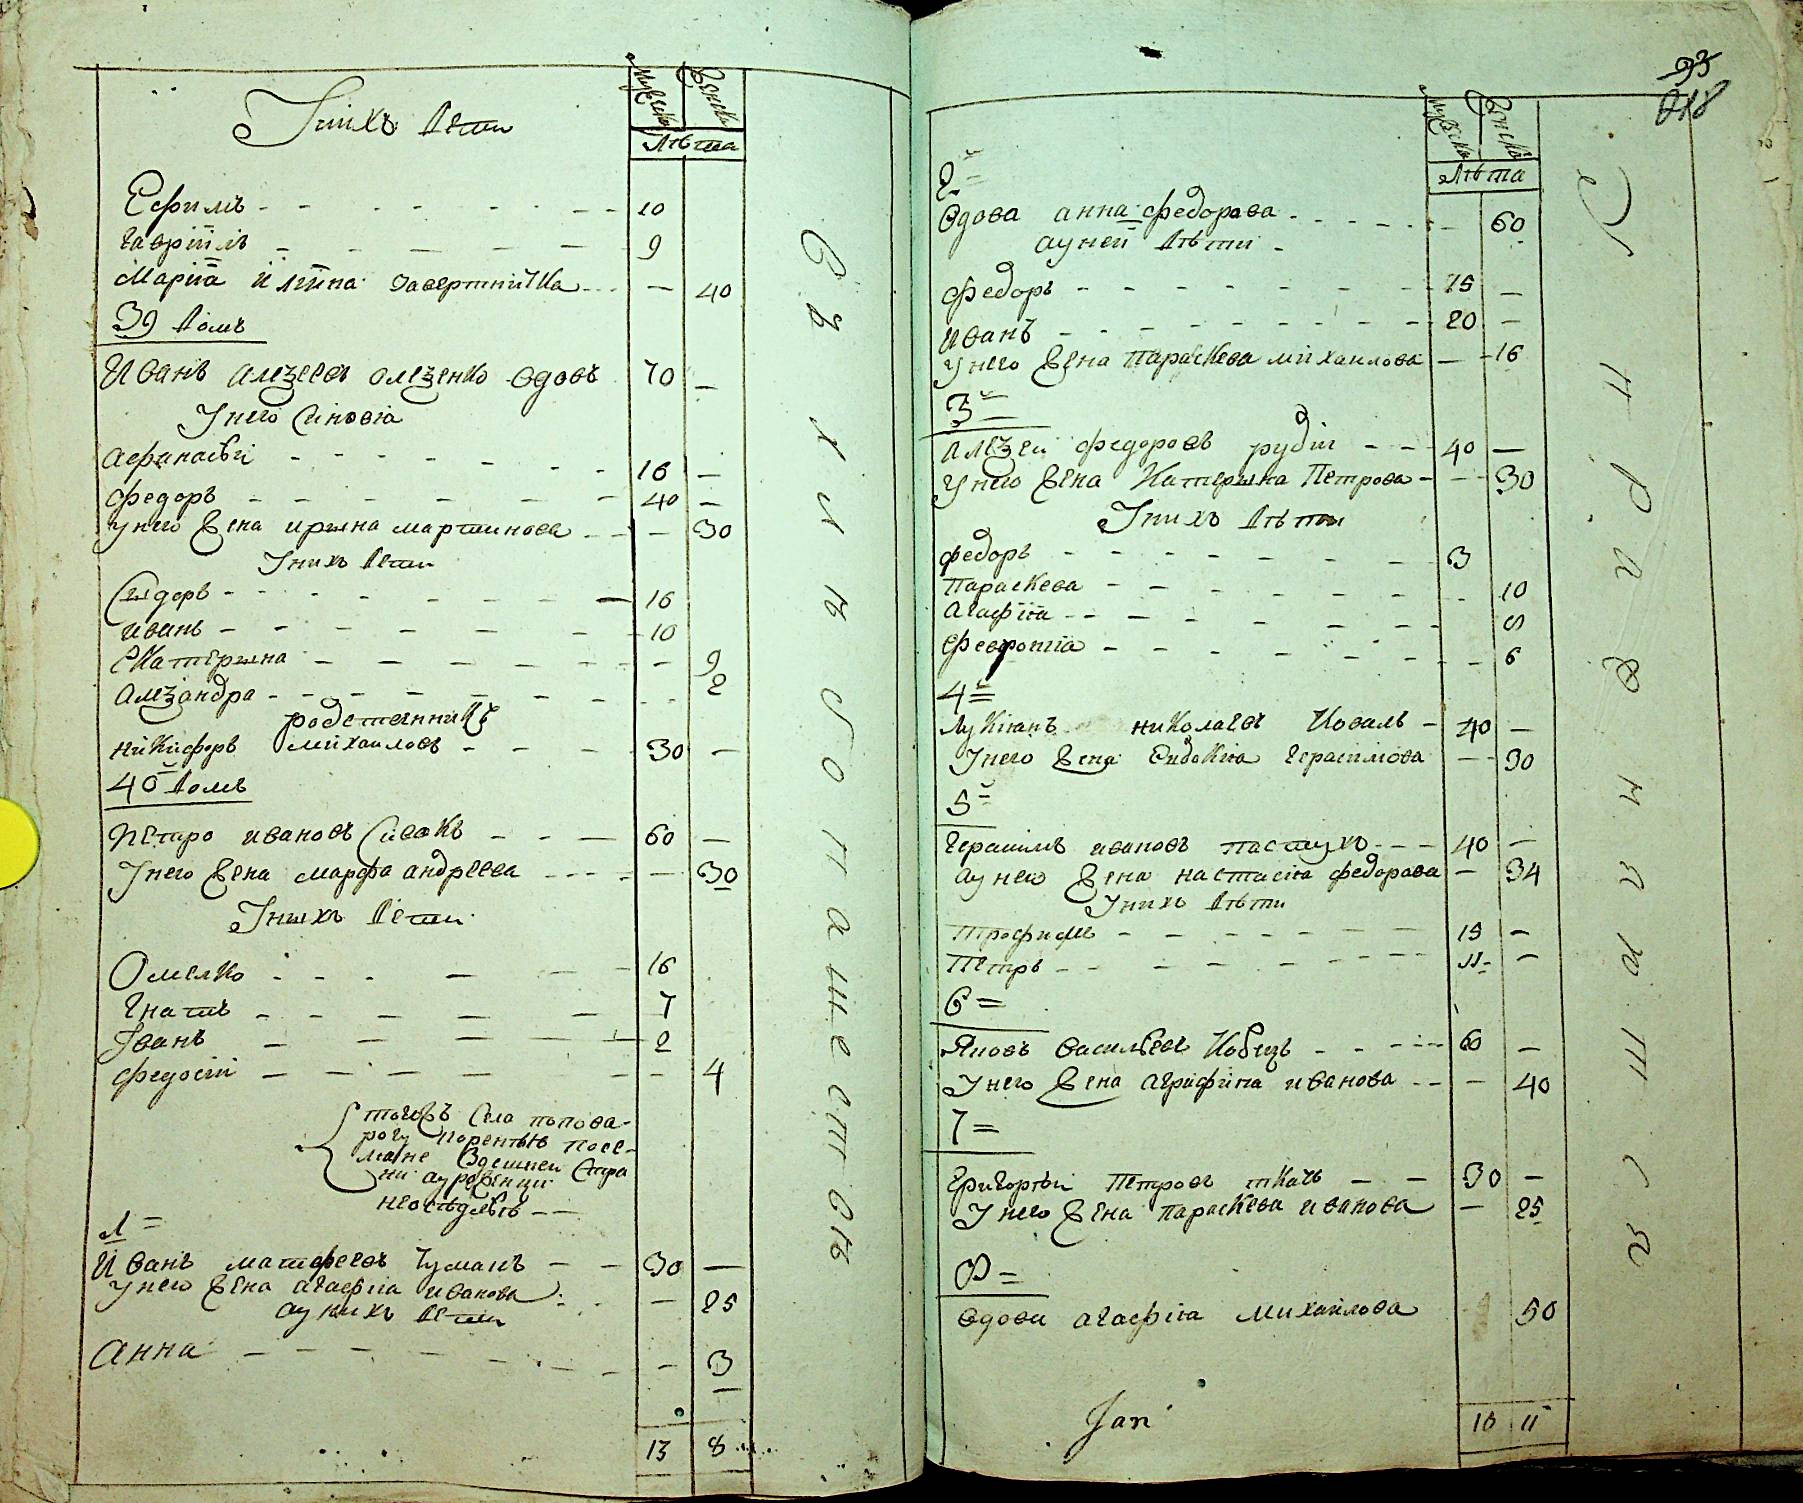 Мужеска Женска
Лѣта
У нихъ дети
Ефимъ 10
Гавріилъ 9
Маріа Илііна 40
39 домъ
Иванъ Алеѯеевъ Олеѯенко вдовъ 70
У него синовіа
Афанасѣй 16
Федоръ 40
У него жена Ирына Мартинова 30
У нихъ дети
Сыдоръ 16
Иванъ 10
Екатерына 9
Алеѯандра 2
родственникъ
Никифоръ Михаиловъ 30
40й домъ
Петро Ивановъ Сивокъ 60
У него жена Марфа Андреева 30
У ныхъ дети
Омелко 16
Гнатъ 7
Іванъ 2
Федосій 4
тогожъ села попова
1 =
Иванъ Матфеевъ Чуманъ 30
У него жена Агафіа Иванова 25
а у ныхъ дети
Анна 3
13 8
въ хилѣбопашествѣ
93
018
Мужеска Женска
Лѣта
2й
Вдова Анна Федорова 60
а у ней дѣти
Федоръ 25
Иванъ 20
У него жена Параскева Михаилова 16
3й
Алеѯей Федоровъ 40
У него жена Катерына Петрова 30
У нихъ дѣти
Федоръ 3
Параскева 10
Агафіа 8
Февроніа 6
4й
Лукіанъ Николаевъ Коваль 40
У него жена Евдокіа Герасимова 30
5й
Герасимъ Ивановъ Пастухъ 40
а у него жена Настасіа Федорова 34
У нихъ дѣти
Трофимъ 15
Петръ 11
6 =
Яковъ Васильевъ Кобецъ 60
У него жена Агрифина Иванова 40
7 =
Григорѣй Петровъ Ткачъ 30
У него жена Параскева Иванова 25
8 =
Вдова Агафіа Михайлова 50
10 11
упражняются